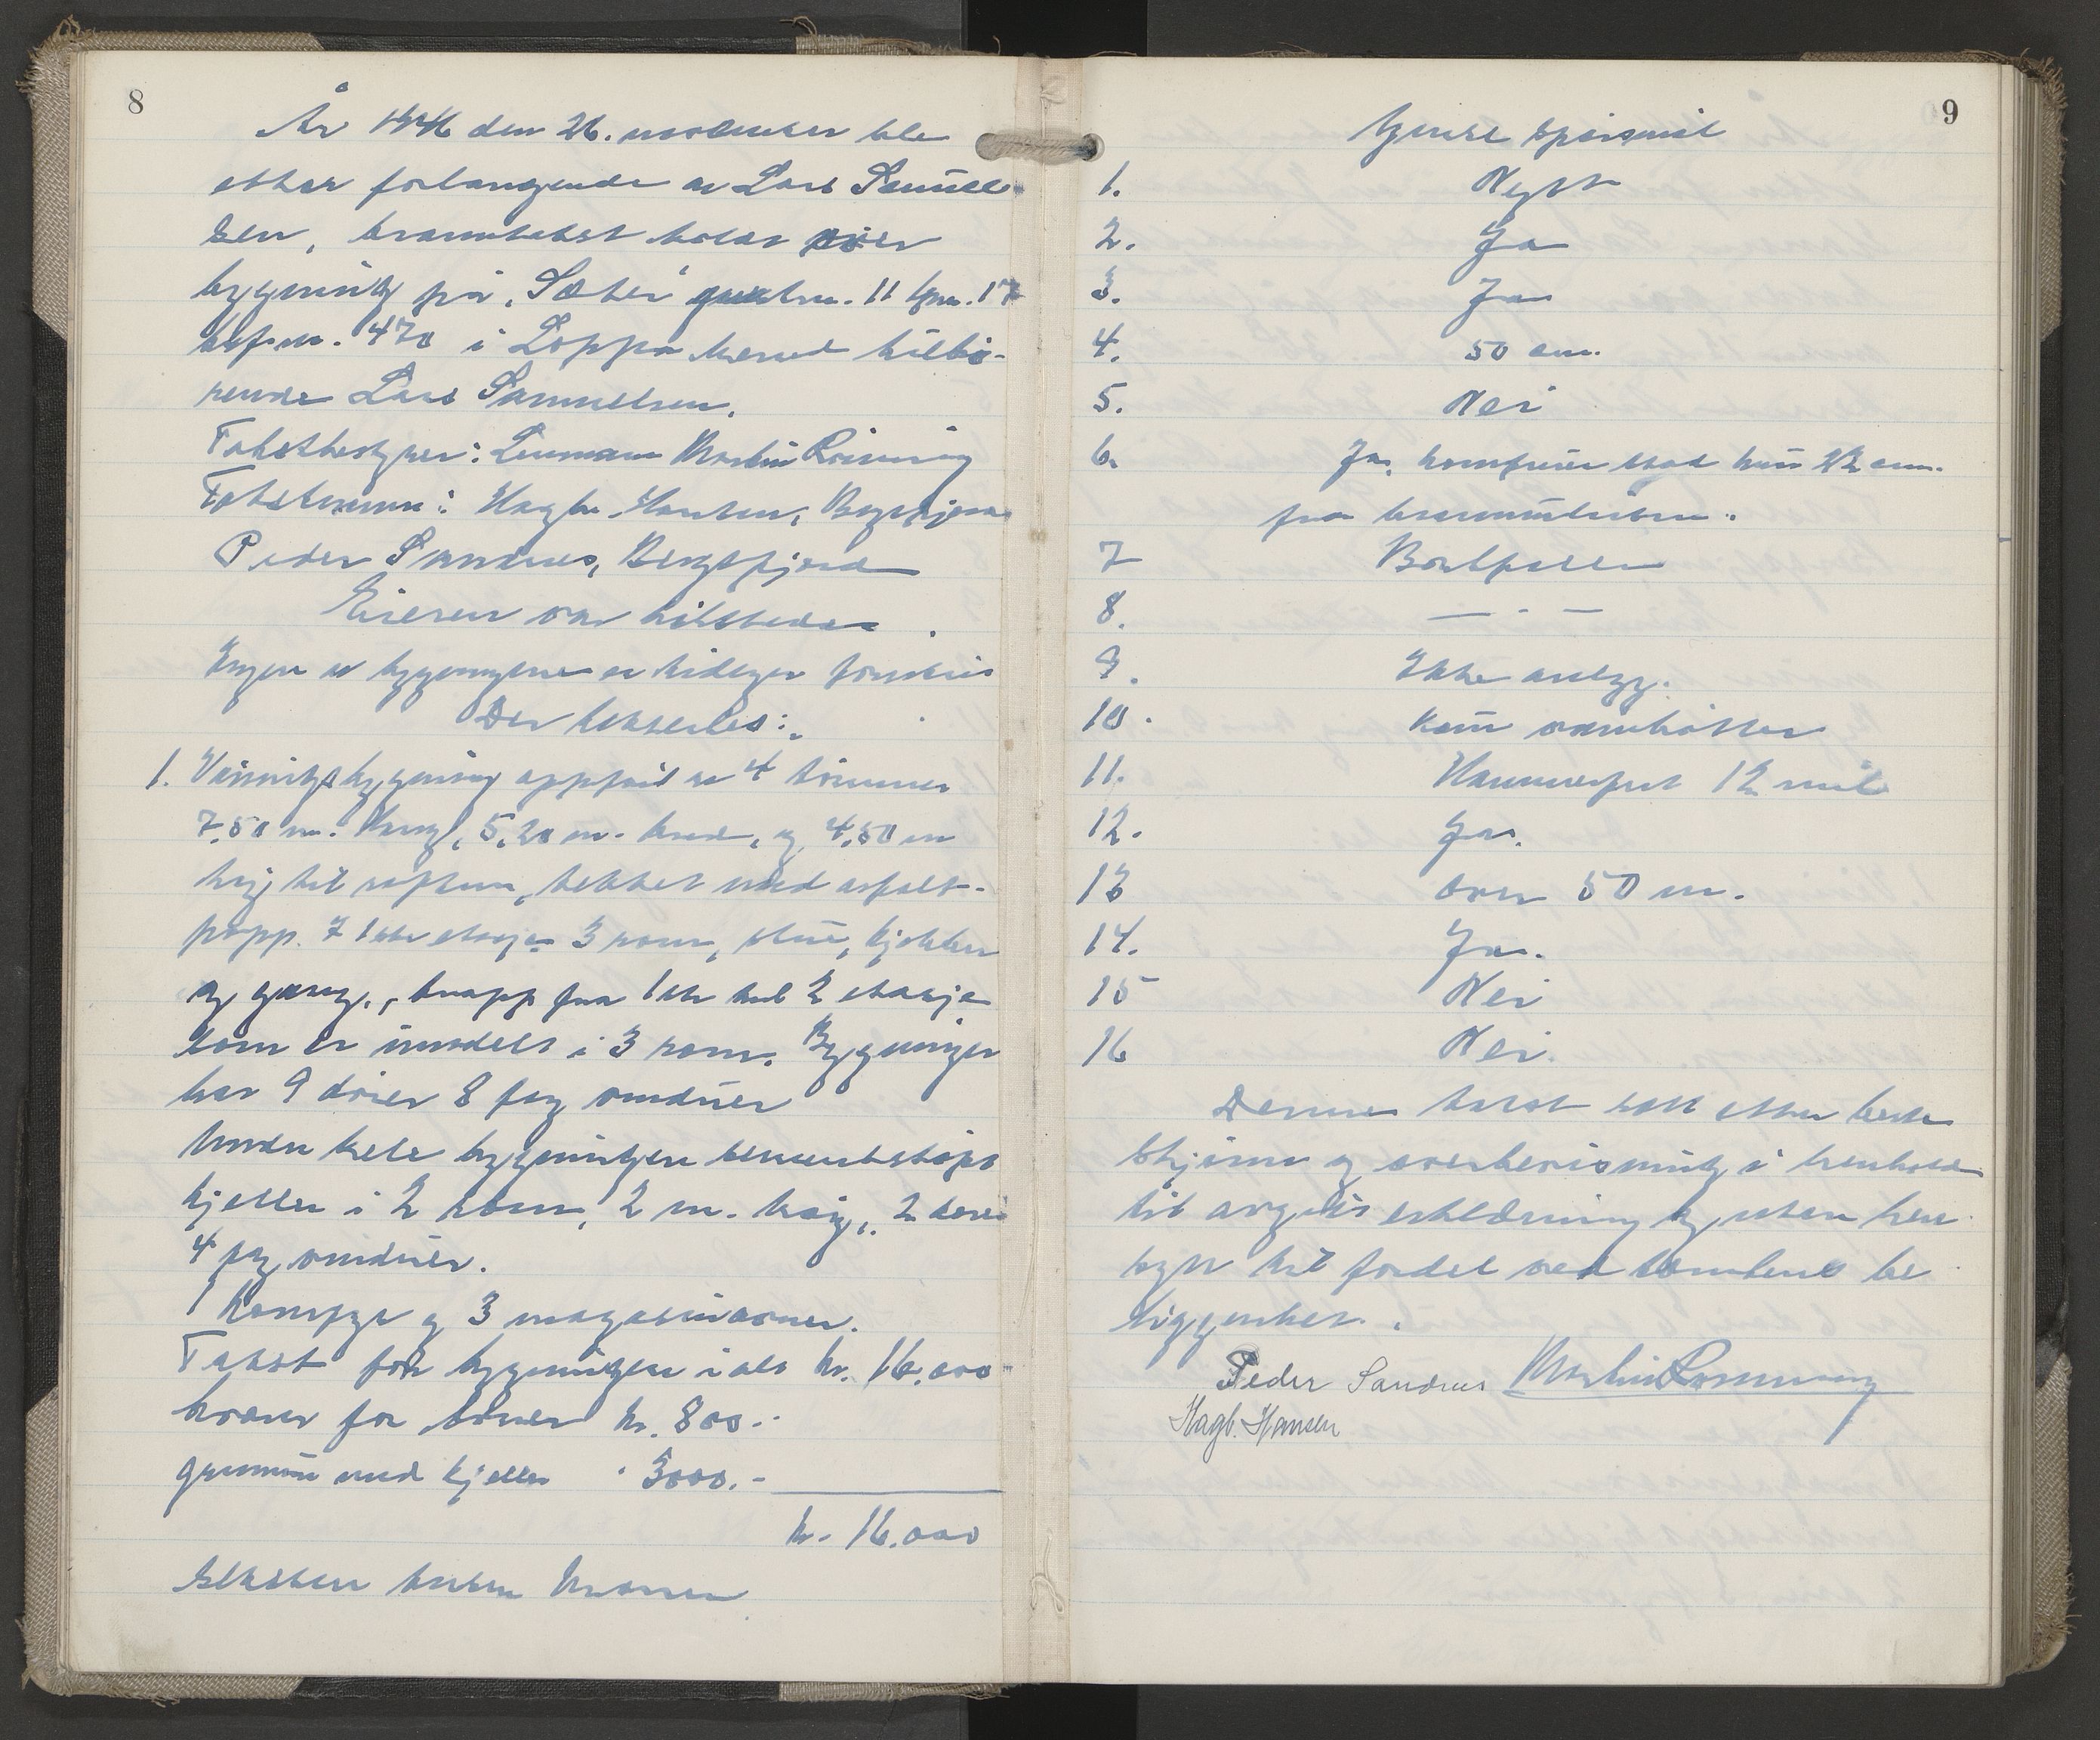 8
År 1946 den 26. november ble
etter forlangende av Lars Samuel-
sen, branntakst holdt over
bygning på "Sæter" gnr. 11 bnr. 17
i Loppa herred tilhø-
rende Lars Samuelsen.
Takstbestyrer: Lensmann Martin Rønning
Takstmenn: Hagb. Hansen, Bergsfjord
Peder Sandnes, Bergsfjord
Eieren var tilstede.
Ingen av bygningene er tidligere forsikret
Der takseres:
1. Våningsbygning oppført av 4" tømmer
7.50 m. lang, 5,20 m. bred, og 4.50 m
høy til raftene, tekket med asfalt-
papp. I 1ste etasje 3 rom, stue, kjøkken
og gang, trapp fra 1ste til 2 etasje
som er innredet i 3 rom. Bygningen
har 9 dører 8 fag vinduer
Under hele bygningen sementstøpt
kjeller i 2 rom, 2 m. høy, 2 dører
4 fag vinduer.
1 komfyr og 3 magasinovner.
Takst for bygningen i alt kr. 16.000
herav for ovner kr. 800.-
grunnmur med kjeller " 3000.-
kr. 16.000
9
1. Nytt
2. Ja
3. Ja
4. 50 cm.
5. Nei
6. Ja, komfuren stod kun 22 cm.
fra brannmuren.
7
8. — " —
9. Ikke anlegg.
10. Kun vannbøtter
11. Hammerfest 12 mil
12. Ja.
13 over 50 m.
14. Ja.
15 Nei
16 Nei.
Denne takst satt etter beste
skjønn og overbevisning i henhold
til avgitt erklæring og uten hen-
syn til fordel ved tomtens be
liggenhet.
Peder Sandnes Martin Rønning
Hagb. Hansen